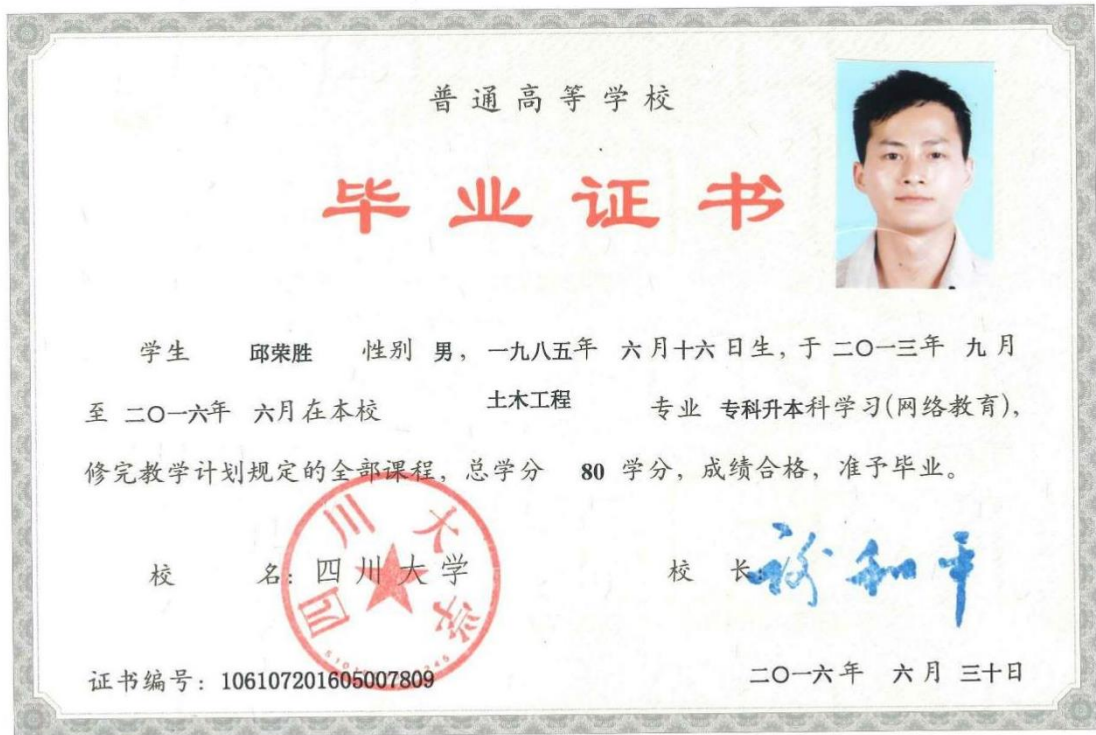 普通高等学校
毕业证书
学生 邱荣胜 性别 男，一九八五年 六月十六日生，于二〇一三年 九月
至 二〇一六年 六月在本校 土木工程 专业 专科升本科学习(网络教育)，
修完教学计划规定的全部课程，总学分 80 学分，成绩合格，准予毕业。
校 名：四川大学
四川大学
校 长：
证书编号：106107201605007809
二〇一六年 六月 三十日